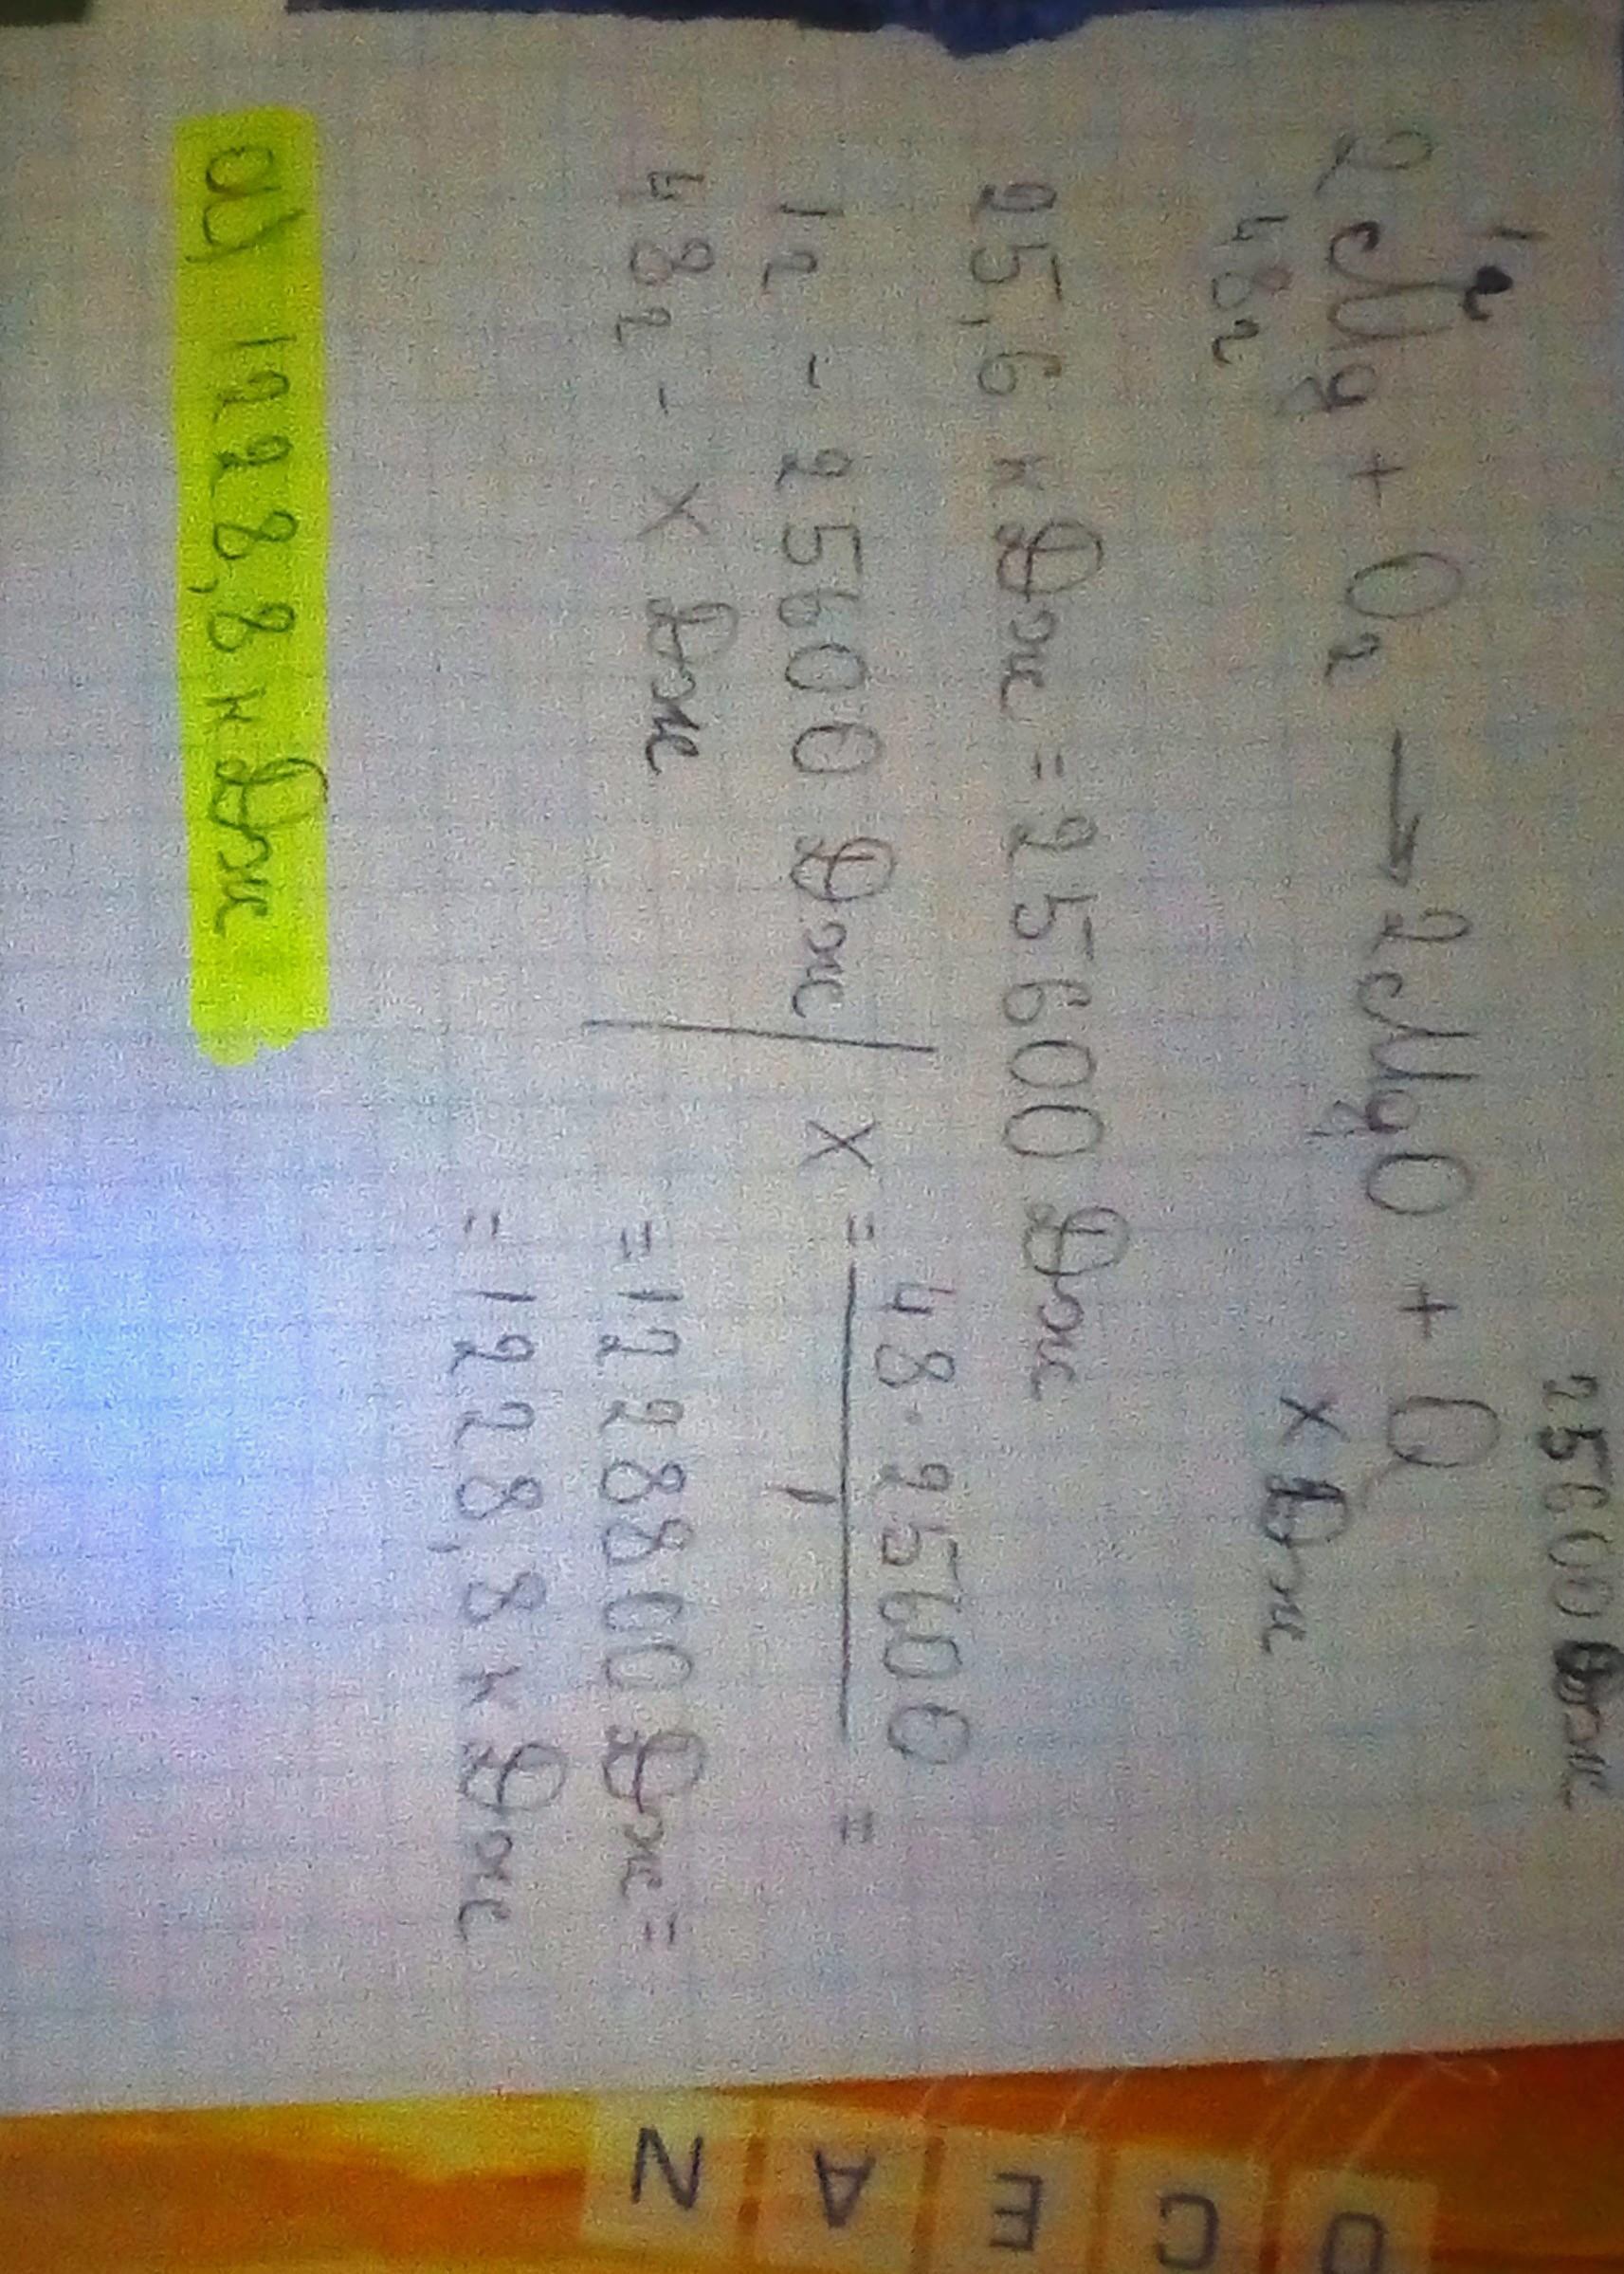 1г 25600 Дж
2Mg + O₂ → 2MgO + Q
48г х Дж
25,6 кДж = 25600 Дж
1г - 25600 Дж | х = 48·25600/1 =
48г - х Дж = 1228800 Дж =
= 1228,8 кДж
а) 1228,8 кДж
OCEAN